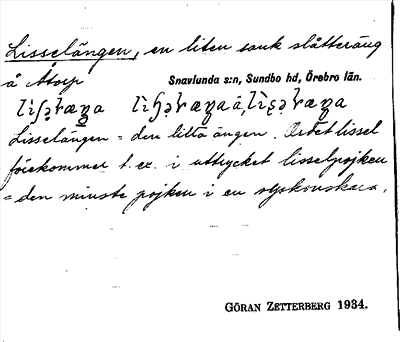 Lisselängen, en liten sank slåtteräng
å Åtorp
Snavlunda s:n, Sundbo hd, Örebro län.
Lisselängen = den lilla ängen. Ordet lissel
förekommer t. ex. i uttrycket lisselpojken
= den minste pojken i en syskonskara.
GÖRAN ZETTERBERG 1934.